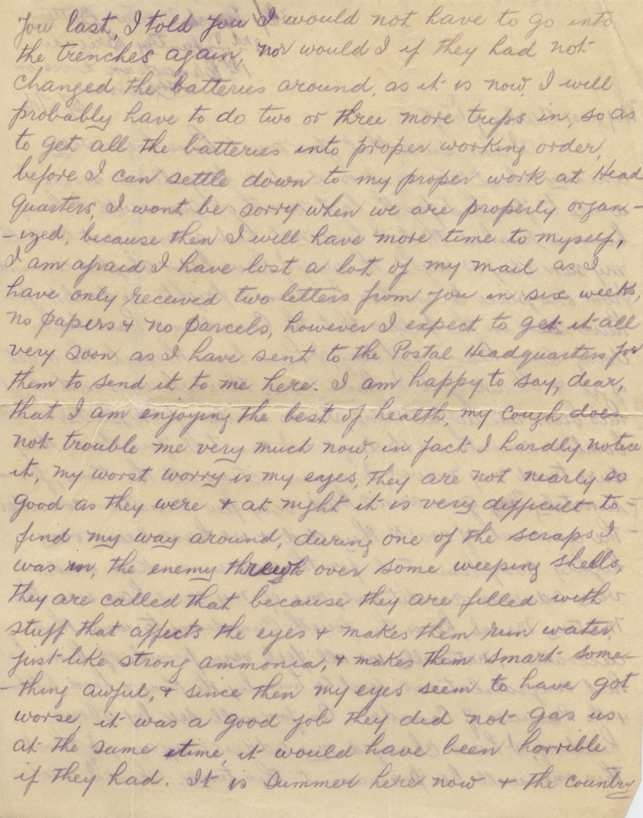 You last, I told you I would not have to go into
the trenches again, nor would I if they had not
changed the batteries around, as it is now, I will
probably have to do two or three more trips in, so as
to get all the batteries into proper working order,
before I can settle down to my proper work at Head
Quarters, I wont be sorry when we are properly organ-
-ized, because then I will have more time to myself,
I am afraid I have lost a lot of my mail as I
have only received two letters from you in six weeks
no papers & no parcels, however I expect to get it all
very soon as I have sent to the Postal Headquarters for
them to send it to me here. I am happy to say, dear,
that I am enjoying the best of health, my cough does
not trouble me very much now, in fact I hardly notice
it, my worst worry is my eyes, they are not nearly so
good as they were & at night it is very difficult to
find my way around, during one of the scraps I
was in, the enemy threwh over some weeping shells,
they are called that because they are filled with
stuff that affects the eyes & makes them run water,
just like strong ammonia, & makes them smart some-
-thing awful, & since then my eyes seem to have got
worse, it was a good job they did not gas us
at the same time, it would have been horrible
if they had. It is Summer here now & the country